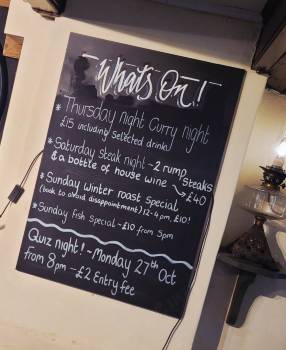 What's On!
* Thursday night Curry night
£15 including selected drink
* Saturday steak night - 2 rump steaks
& a bottle of house wine → £40
* Sunday winter roast special
(book to avoid disappointment) 12-4pm, £10!
* Sunday fish special - £10 from 5pm
Quiz night! - Monday 27th Oct
from 8pm - £2 Entry fee